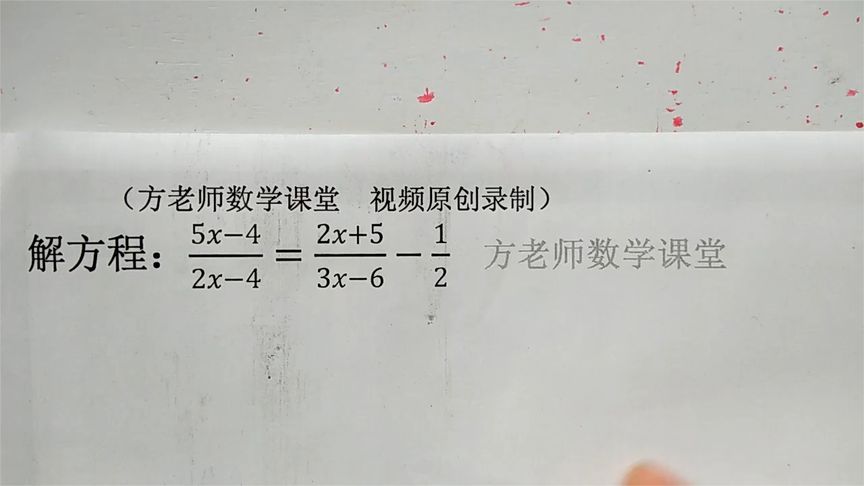 （方老师数学课堂　视频原创录制）
解方程：(5x−4)/(2x−4) = (2x+5)/(3x−6) − 1/2　方老师数学课堂